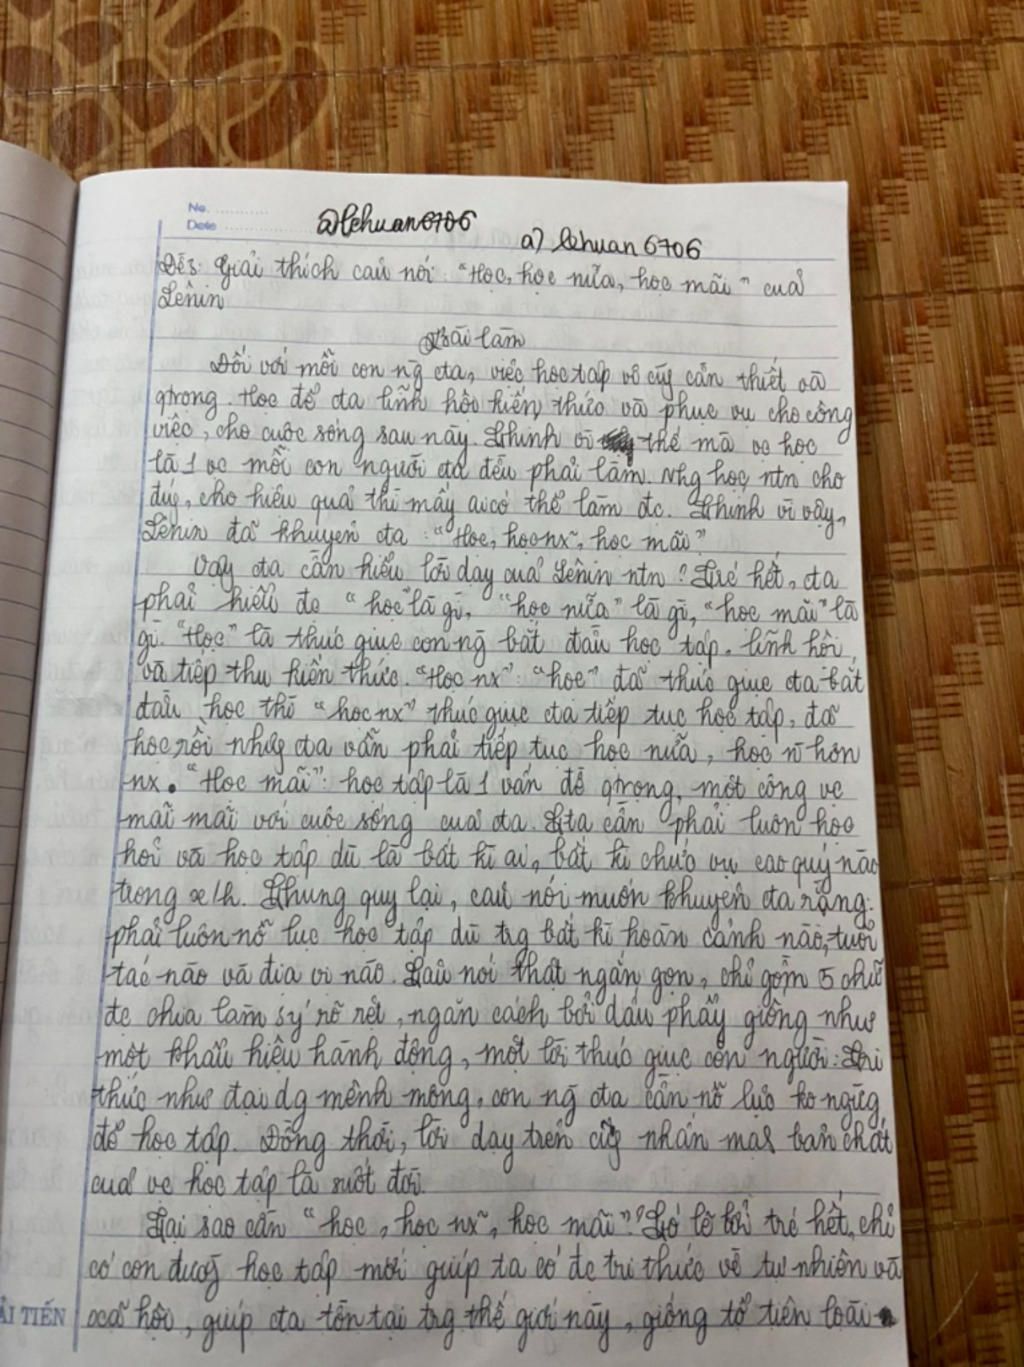 No. ............
Date ............
@lehuan6706
a) lehuan6706
Đề 3: Giải thích câu nói: "Học, học nữa, học mãi" của
Lênin
Bài làm
Đối với mỗi con ng cta, việc học tập vô cùg cần thiết và
qtrọng. Học để cta lĩnh hội kiến thức và phục vụ cho công
việc, cho cuộc sống sau này. Chính vì thế mà vc học
là 1 vc mỗi con người cta đều phải làm. Nhg học ntn cho
đúg, cho hiệu quả thì mấy ai có thể làm đc. Chính vì vậy,
Lênin đã khuyên cta: "Học, học nx, học mãi"
Vậy cta cần hiểu lời dạy của Lênin ntn? Trc hết, cta
phải hiểu đc "học" là gì, "học nữa" là gì, "học mãi" là
gì. "Học" là thúc giục con ng bắt đầu học tập, lĩnh hội
và tiếp thu kiến thức. "Học nx": "học" đã thúc giục cta bắt
đầu học thì "học nx" thúc giục cta tiếp tục học tập, đã
học rồi nhưg cta vẫn phải tiếp tục học nữa, học n hơn
nx. "Học mãi": học tập là 1 vấn đề qtrọng, một công vc
mãi mãi với cuộc sống của cta. Cta cần phải luôn học
hỏi và học tập dù là bất kì ai, bất kì chức vụ cao quý nào
trong xh. Chung quy lại, câu nói muốn khuyên cta rằng:
phải luôn nỗ lực học tập dù trg bất kì hoàn cảnh nào, tuổi
tác nào và địa vị nào. Câu nói thật ngắn gọn, chỉ gồm 5 chữ
đc chia làm 3 ý rõ rệt, ngăn cách bởi dấu phẩy giống như
một khẩu hiệu hành động, một lời thúc giục con người: Tri
thức như đại dg mênh mông, con ng cta cần nỗ lực ko ngừg
để học tập. Đồng thời, lời dạy trên cũg nhấn mạh bản chất
của vc học tập là suốt đời.
Tại sao cần "học, học nx, học mãi"? Có lẽ bởi trc hết, chỉ
có con đườg học tập mới giúp ta có đc tri thức về tự nhiên và
xã hội, giúp cta tồn tại trg thế giới này, giống tổ tiên loài
ẢI TIẾN